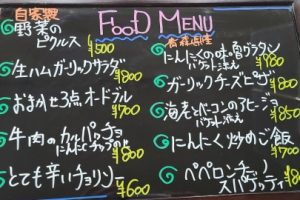 FOOD MENU
自家製
野菜の
ピクルス
¥500
生ハムガーリックサラダ
¥800
おまかせ3点オードブル
¥700
牛肉のカルパッチョ
にんにくチップのせ
¥800
とても辛いチョリソー
¥600
青森県産
にんにくの味噌グラタン
バゲット添え
¥780
ガーリックチーズピザ
¥800
海老とベーコンのアヒージョ
バゲット添え
¥850
にんにく炒めご飯
¥700
ペペロンチーノ
スパゲッティ
¥800